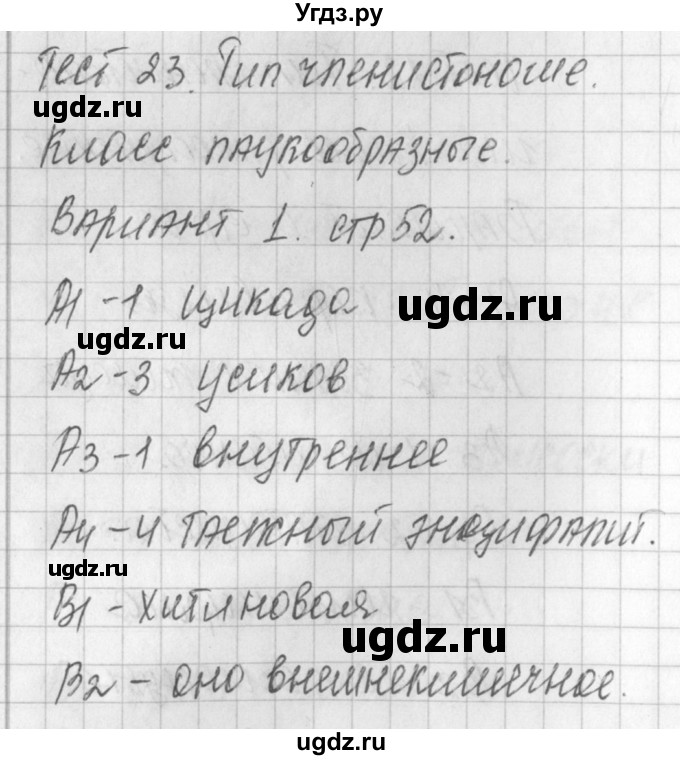 Угдз.ру
Тест 23. Тип членистоногие.
ugdz.ru
Класс паукообразные.
Вариант 1. стр 52.
А1 - 1 цикада
ugdz.ru
ugdz.ru
А2 - 3 усиков
А3 - 1 внутреннее
А4 - 4 таежный энцифалит.
ugdz.ru
В1 - Хитиновая
ugdz.ru
В2 - оно внешнекишечное.
ugdz.ru